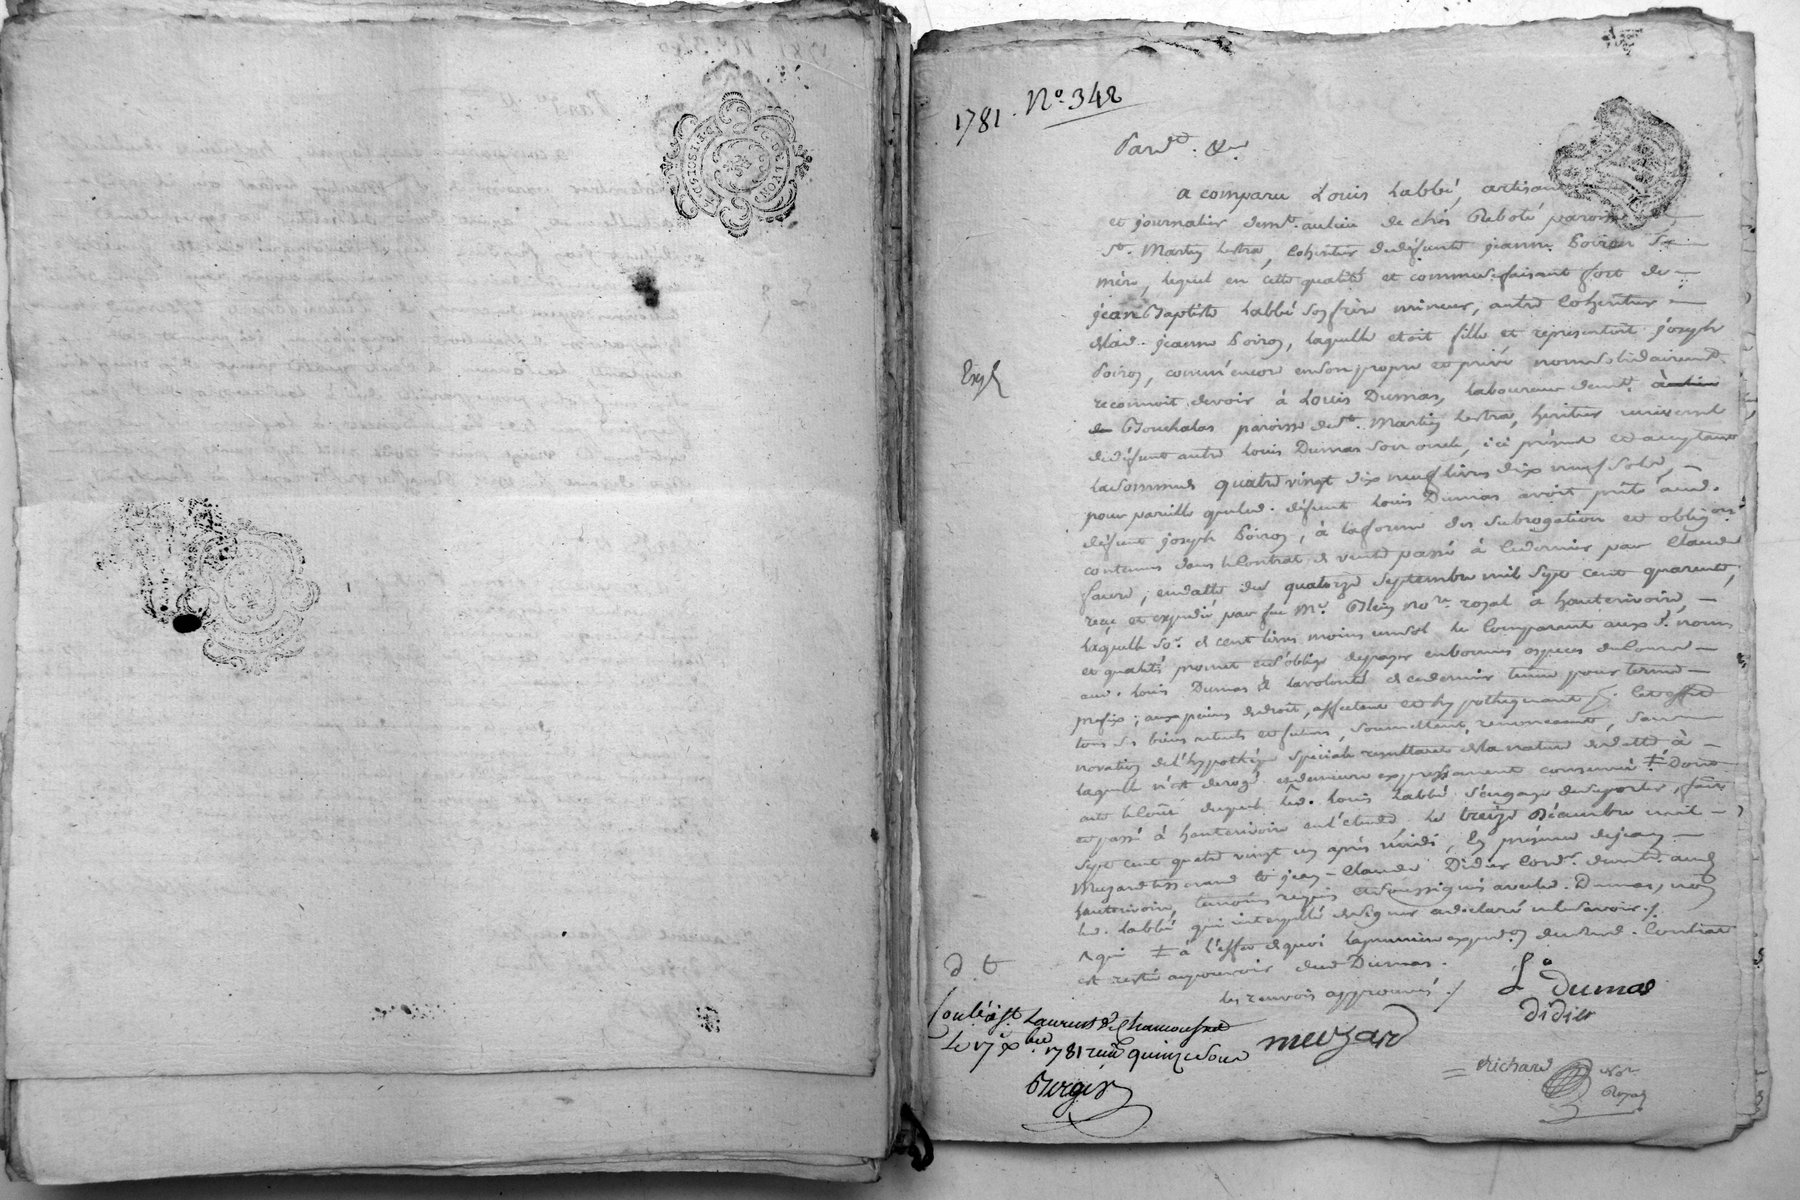 1781. N.º 342
Pard.t &.
a comparu Louis Labbé, artisan
et journalier demt. au lieu de chés Reboté paroisse
St. Martin Lestra, coheritier de defunte jeanne Poiron sa
mère, lequel en cette qualité et comme se faisant fort de
jean Baptiste Labbé son frère mineur, autre coheritier
de lad. jeanne Poiron, laquelle etoit fille et representoit joseph
Poiron, comm'encore en son propre et privé nom solidairement
reconnoit devoir à Louis Dumas, laboureur demt. à
de Bouchalas paroisse de St. Martin Lestra, heritier universel
de defunt autre Louis Dumas son oncle, ici présent et acceptant
la somme de quatre vingt dix neuf livres dix neuf sols,
pour pareille que led. defunt Louis Dumas avoit prêté aud.
defunt joseph Poiron, à la forme des subrogation et oblig.on
contenues dans le contrat de vente passé à ce dernier par Claude
faure, en datte du quatorze septembre mil sept cent quarente,
reçu et expedié par feu Me. Blein nore. royal à hauterivoire,
laquelle se. de cent livres moins un sol le comparant aux d. noms
et qualités promet et s'oblige de payer en bonnes especes de cours
aud. Louis Dumas à la volonté de ce dernier tenue pour terme
prefix; aux peines de droit, affectant et hypothequant à cet effet
tous ses biens présents et futurs, soumettant, renonceant, sans
novation de l'hypothèque spéciale resultant de la nature de dette à
laquelle n'est derogé et demeure expressement conservée ‡ Dont
acte le coût duquel led. Louis Labbé s'engage de supporter, fait
et passé à hauterivoire en l'etude le treize Décembre mil
sept cent quatre vingt un après midi, en présence de jean
Meuzard tisserand et jean-Claude Didier Cordr. demt. aud.
hauterivoire, temoins requis et soussignés avec led. Dumas, non
led. Labbé qui interpellé de signer a declaré ne le savoir ./.
‡ à l'effet de quoi la premiere exped.on dud. Contrat
est resté au pouvoir dud Dumas.
les renvois approuvés ./
Ls dumas
didier
meuzard
Richard Nore Royal
Exp.
d. C
Conlé à St Laurent de Chamousset
le 17 Xbre 1781 reçu quinze sous
Berger